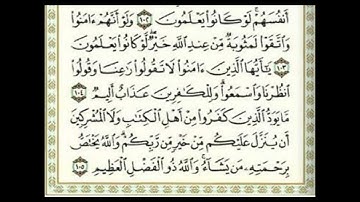 أَنفُسَهُمْ لَوْ كَانُوا۟ يَعْلَمُونَ ١٠٢ وَلَوْ أَنَّهُمْ ءَامَنُوا۟
وَٱتَّقَوْا۟ لَمَثُوبَةٌ مِّنْ عِندِ ٱللَّهِ خَيْرٌ لَّوْ كَانُوا۟ يَعْلَمُونَ
١٠٣ يَٰٓأَيُّهَا ٱلَّذِينَ ءَامَنُوا۟ لَا تَقُولُوا۟ رَٰعِنَا وَقُولُوا۟
ٱنظُرْنَا وَٱسْمَعُوا۟ وَلِلْكَٰفِرِينَ عَذَابٌ أَلِيمٌ ١٠٤
مَّا يَوَدُّ ٱلَّذِينَ كَفَرُوا۟ مِنْ أَهْلِ ٱلْكِتَٰبِ وَلَا ٱلْمُشْرِكِينَ
أَن يُنَزَّلَ عَلَيْكُم مِّنْ خَيْرٍ مِّن رَّبِّكُمْ وَٱللَّهُ يَخْتَصُّ
بِرَحْمَتِهِۦ مَن يَشَآءُ وَٱللَّهُ ذُو ٱلْفَضْلِ ٱلْعَظِيمِ ١٠٥